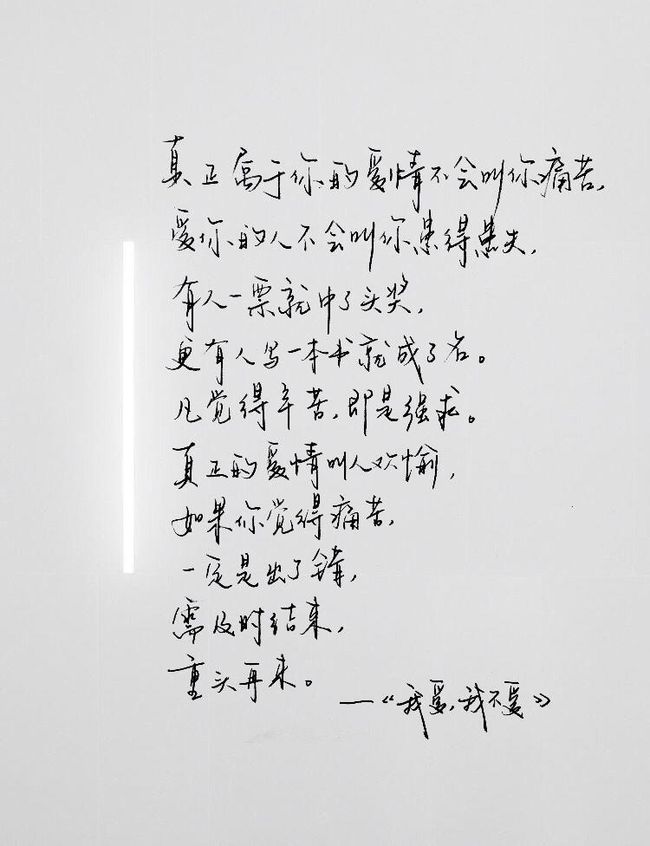 真正属于你的爱情不会叫你痛苦,
爱你的人不会叫你患得患失,
有人一票就中了头奖,
更有人写一本书就成了名。
凡觉得辛苦,即是强求。
真正的爱情叫人欢愉,
如果你觉得痛苦,
一定是出了错,
需及时结束,
重头再来。
—《我爱,我不爱》